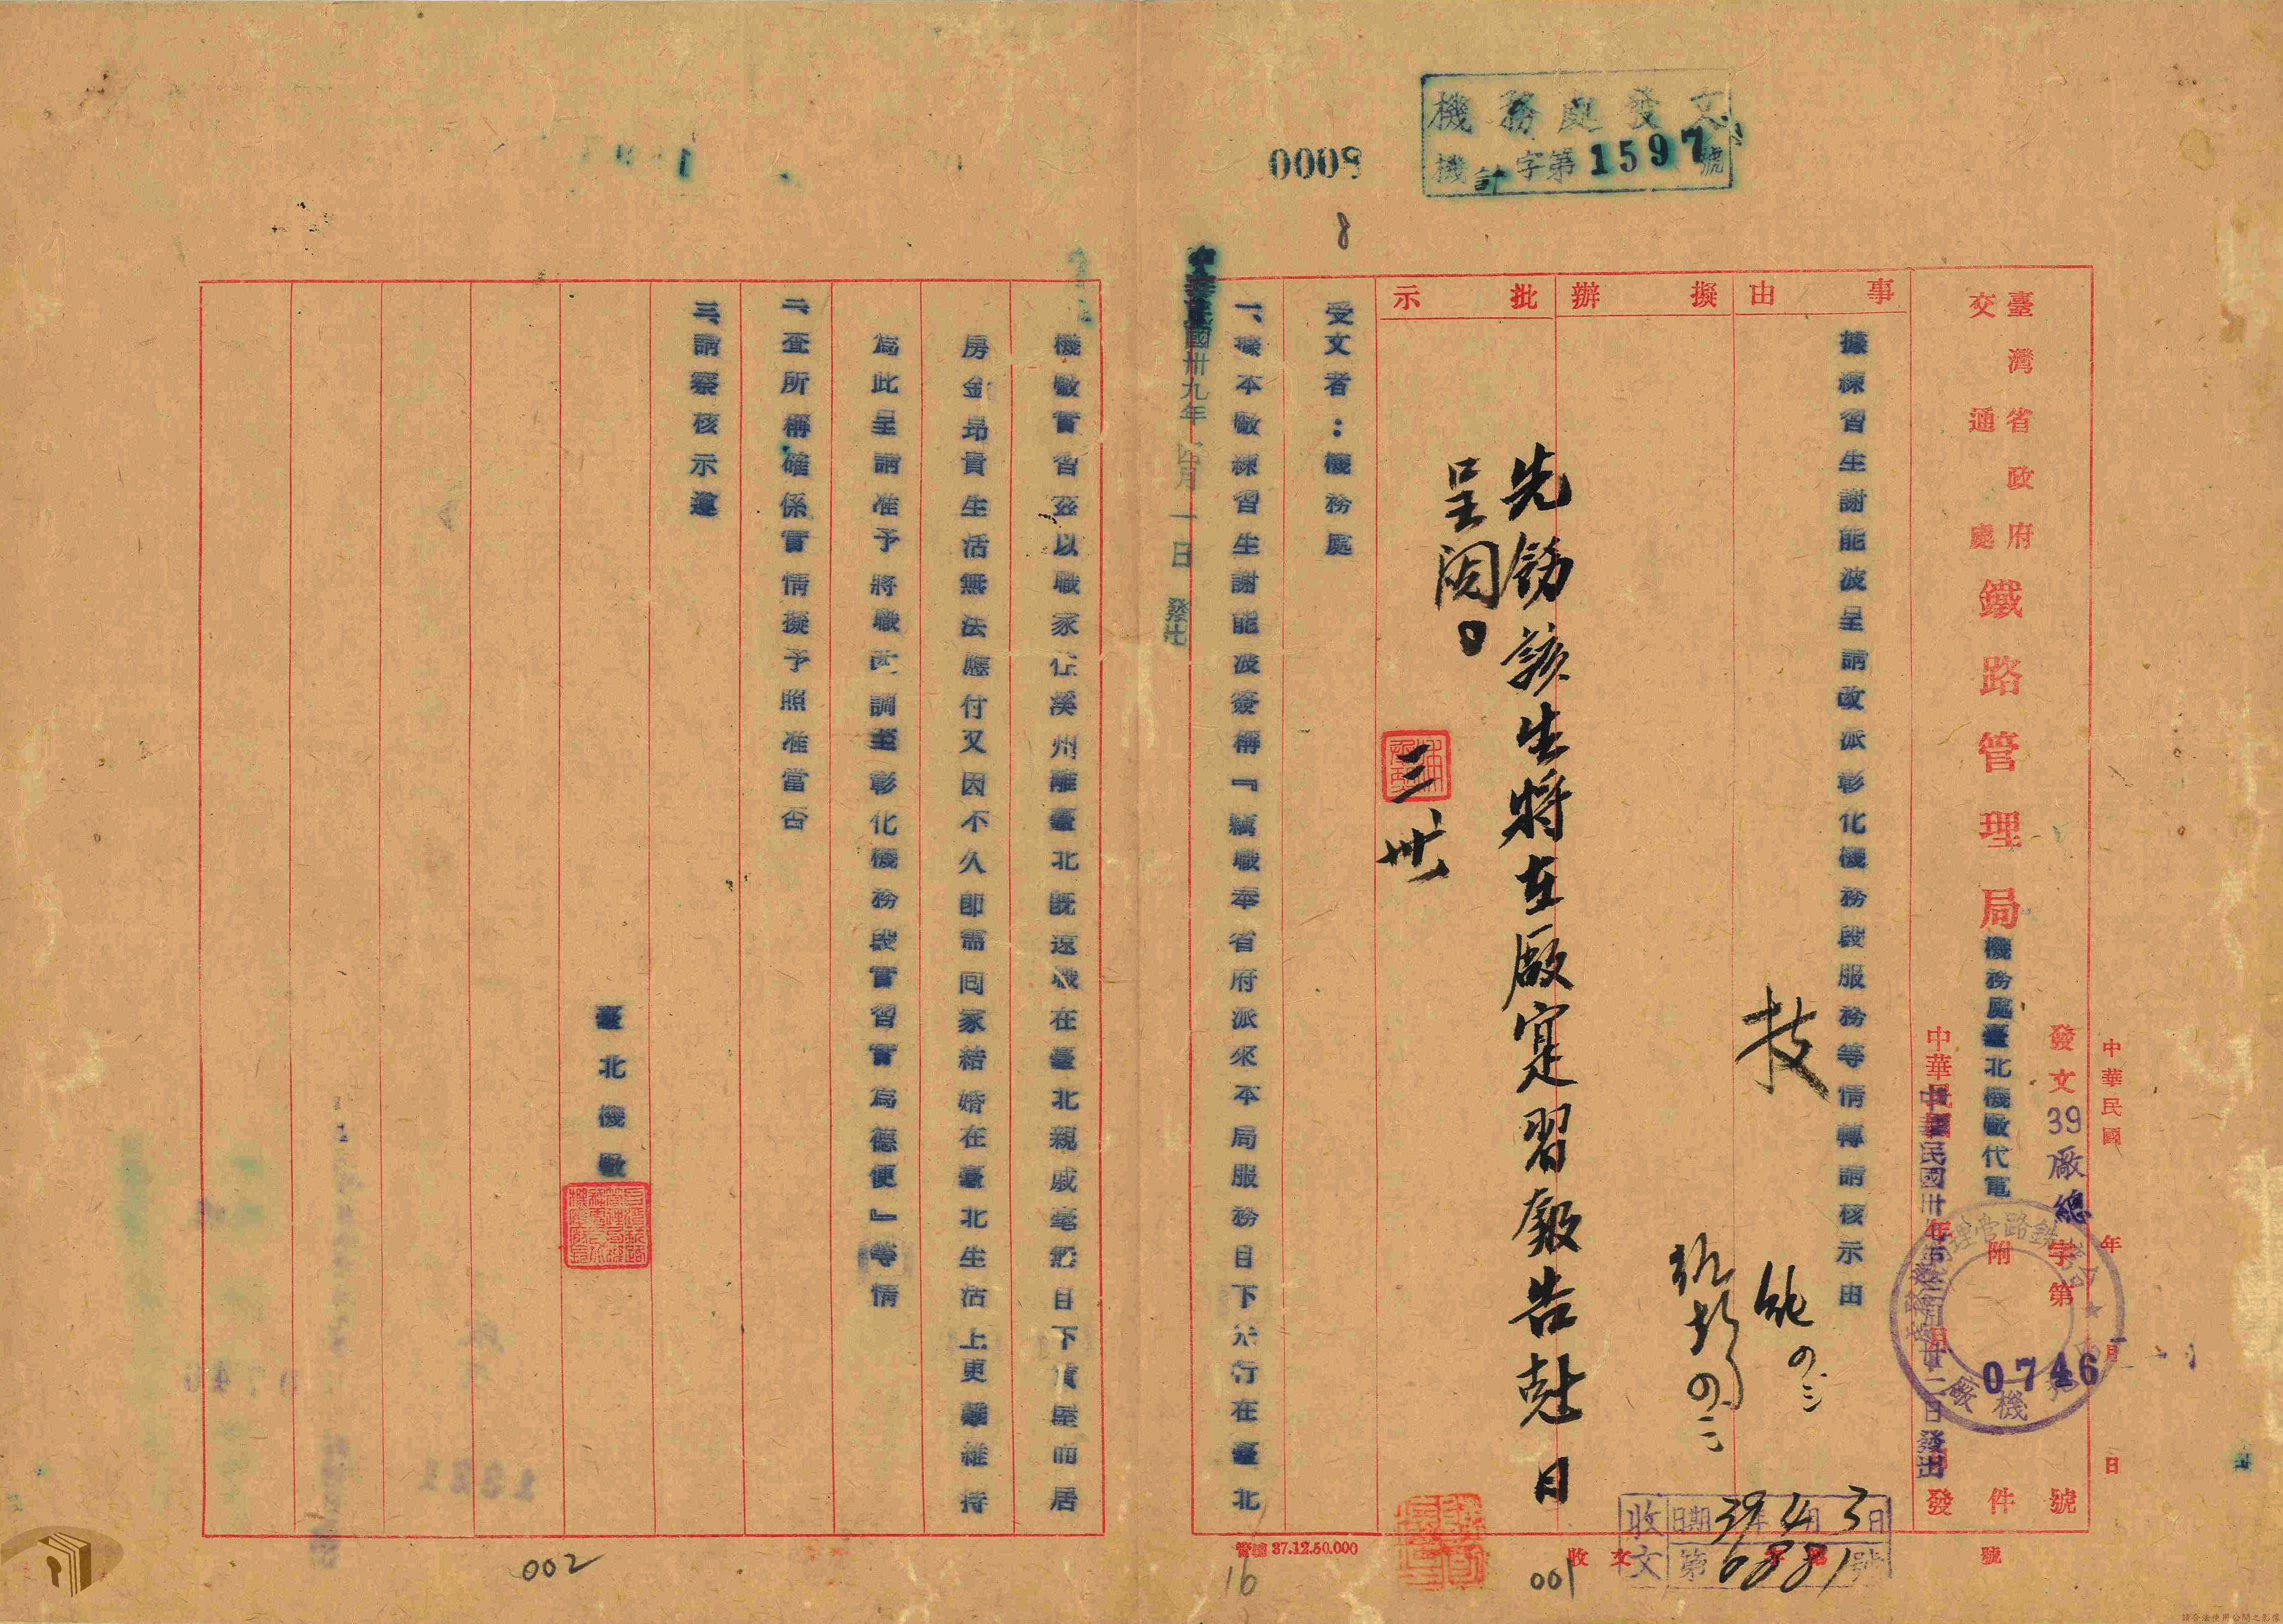 機務處發文
機計字第1597號
0009
8
中華民國 年 月 日
發文39廠總字第0746號
臺灣省政府
交通處
鐵路管理局機務處臺北機廠代電
附件
號
事由
據練習生謝能波呈請改派彰化機務段服務等情轉請核示由
技
擬辦
批示
先飭該生將在廠寔習報告
呈閱
三卅
受文者:機務處
一、據本廠練習生謝能波簽稱『竊職奉省府派來本局服務目下示行在臺北
中華民國卅九年四月一日發出
機廠實習茲以職家住溪州離臺北既遠職在臺北親戚毫無目下賃屋而居
房金昂貴生活無法應付又因不久即需回家結婚在臺北生活上更難維持
為此呈請准予將職改調至彰化機務段實習實為德便』等情
二、查所稱確係實情擬予照准當否
三、請察核示遵
臺北機廠
收文
日期39年4月3日
第0881號
收文 字第 號
管總 37.12.50.000
16
001
002